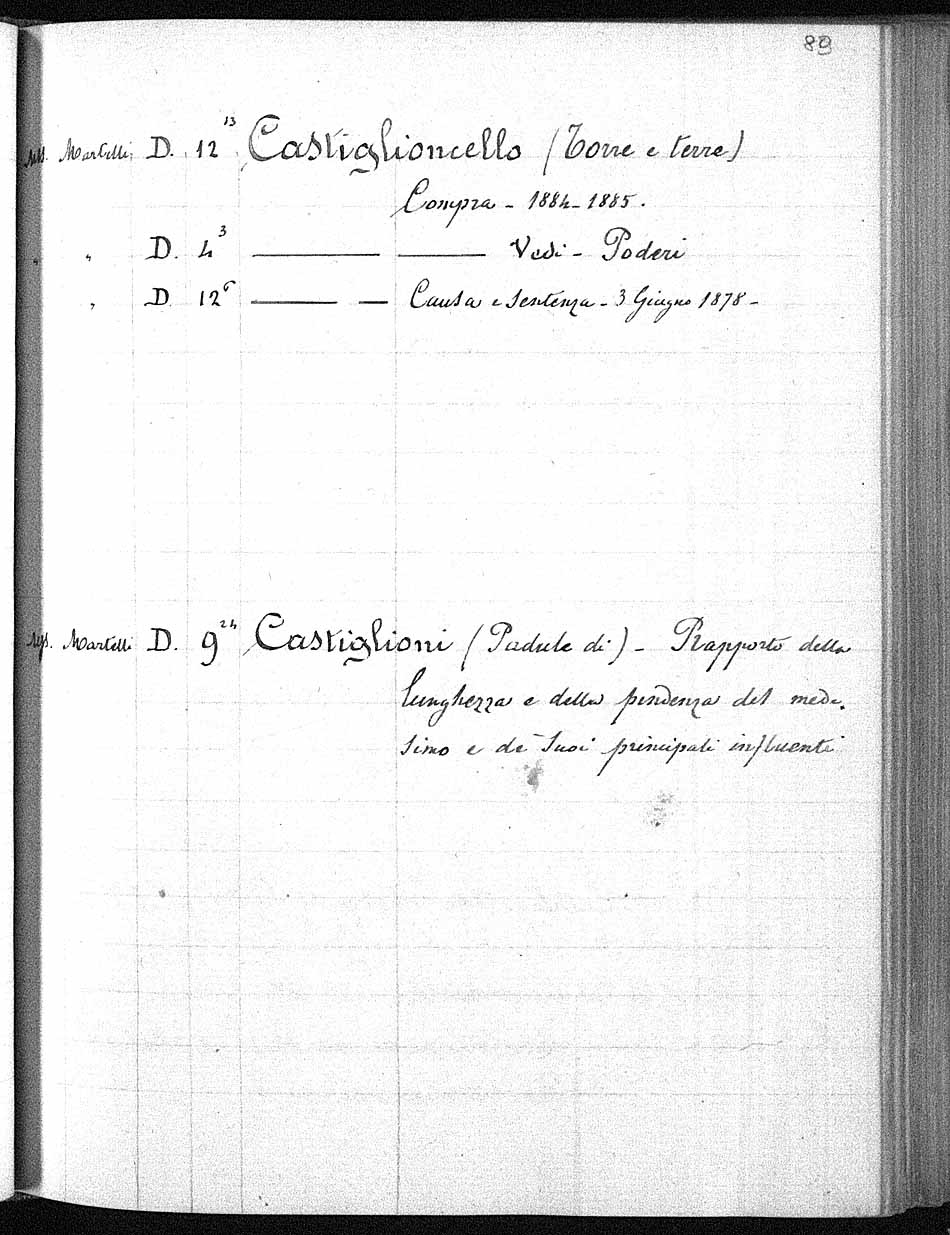 89
Mss. Martelli, D. 12 13 Castiglioncello (Torre e terre)
Compra - 1884-1885.
" " D. 4 3 — — Vedi - Poderi
" D. 12 6 — — Causa e Sentenza - 3 Giugno 1878 -
Mss. Martelli D. 9 24 Castiglioni (Padule di) - Rapporto della
lunghezza e della pendenza del mede-
simo e de' suoi principali influenti